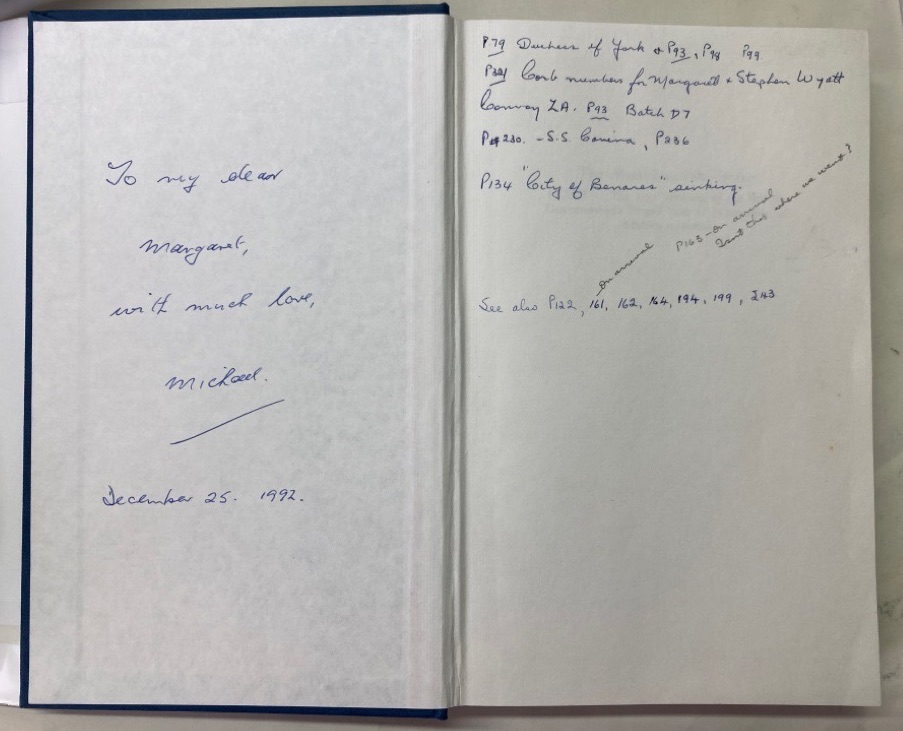 To my dear
Margaret,
with much love,
Michael.
December 25. 1992.
P79 Duchess of York & P93, P98 P99
Corb numbers for Margaret & Stephen Wyatt
Convoy ZA. P93 Batch D7
230. - S.S. , P236
P134 "City of Benares" sinking.
P163 - on arrival
Isn't this where we went?
on arrival
See also P122, 161, 162, 164, 194, 199, 243